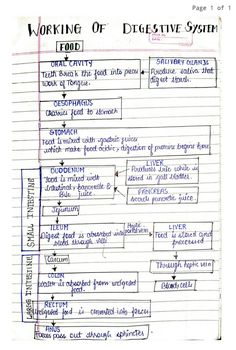 Page 1 of 1
WORKING OF DIGESTIVE SYSTEM
FOOD
ORAL CAVITY
Teeth Break the food into pieces
Work of Tongue.
SALIVARY GLANDS
Produce saliva that
digest starch.
OESOPHAGUS
Carries food to stomach
STOMACH
Food is mixed with gastric juice
which make food acidic, digestion of proteins begins here.
DUODENUM
Food is mixed with
Intestinal, pancreatic &
Bile juice.
LIVER
Produces bile which is
stored in gall bladder.
PANCREAS
Secrets pancreatic juice.
SMALL INTESTINE
Jejunum
ILEUM
Digest food is absorbed into
blood through villi
Hepatic
LIVER
Food is stored and
processed
Caecum
Through hepatic vein
LARGE INTESTINE
COLON
Water is absorbed from undigested
food.
Body cells
RECTUM
Undigested food is converted into faeces
ANUS
Faeces pass out through sphincter.